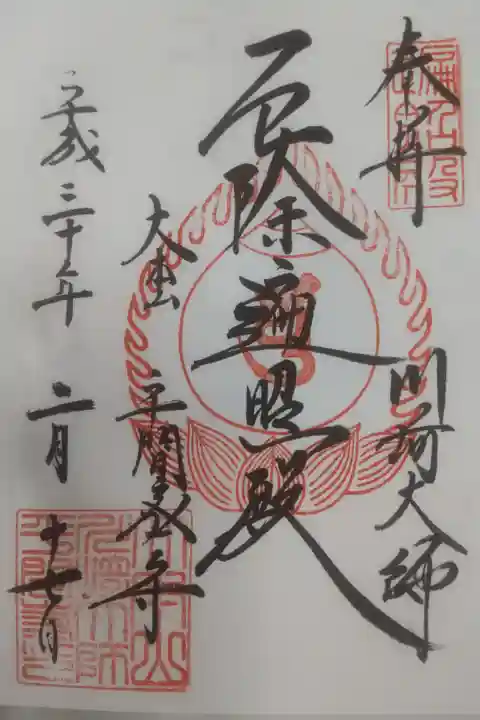 奉拝
川崎大師
厄除遍照殿
大本山
平間教寺
平成三十年
二月
十七日